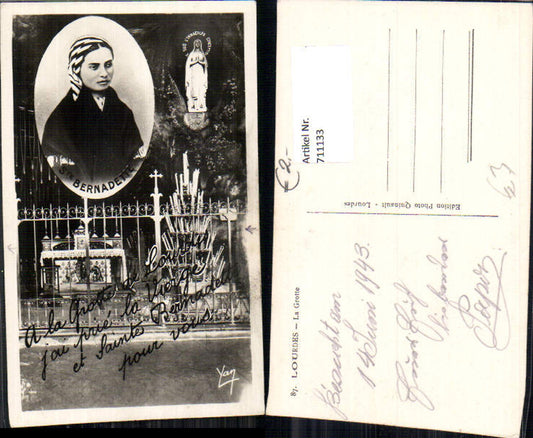 QUE SOY ERA IMMACULADA COUNCEPCIOU
Ste BERNADETTE
A la Grotte de Lourdes
j'ai prié la Vierge
et Sainte Bernadette
pour vous.
Yan
Artikel Nr.
711133
€ 2.-
63
Edition Photo Quinault - Lourdes
87. LOURDES – La Grotte
14 Juni 1943.